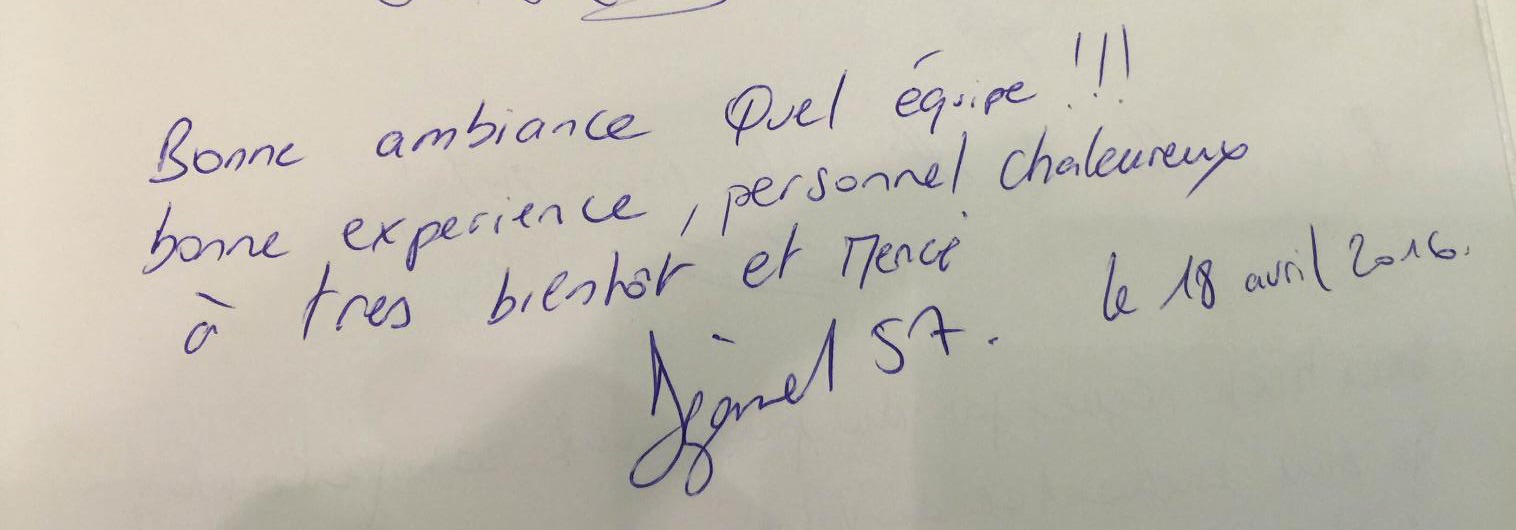 Bonne ambiance Quel équipe !!!
bonne experience, personnel chaleureux
à tres bientôt et Merci
le 18 avril 2016.
57.